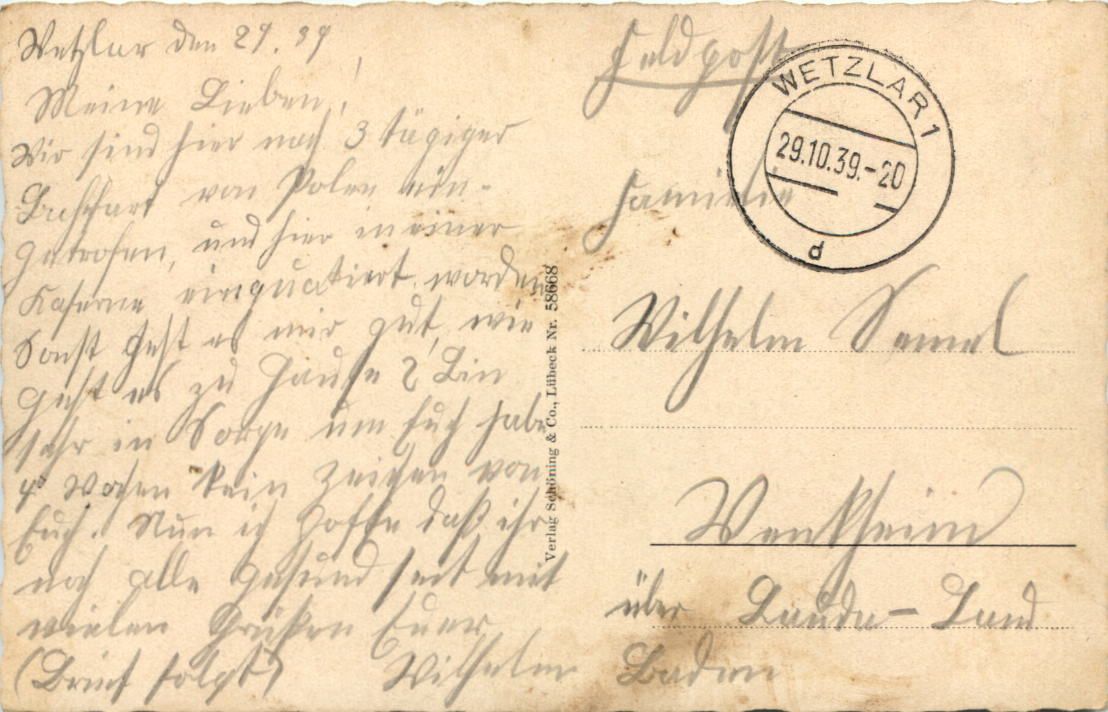 Wetzlar den 29. 39
Meine Lieben!
Wir sind hier nach 3 tägiger
von Polen ein-
getrofen, und hier in einer
Kaserne einquatiert worden
Sonst geht es mir gut, wie
geht es zu Hause? Bin
sehr in Sorge um Euch habe
4 Wochen kein Zeichen von
Euch. Nun ich hoffe daß ihr
noch alle Gesund seit mit
vielen Grüßen Euer
(Brief folgt) Wilhelm
Verlag Schöning & Co., Lübeck Nr. 58668
Feldpost
WETZLAR 1
29.10.39.-20
d
Familie
Wilhelm
Wenkheim
über Lauda-Land
Baden